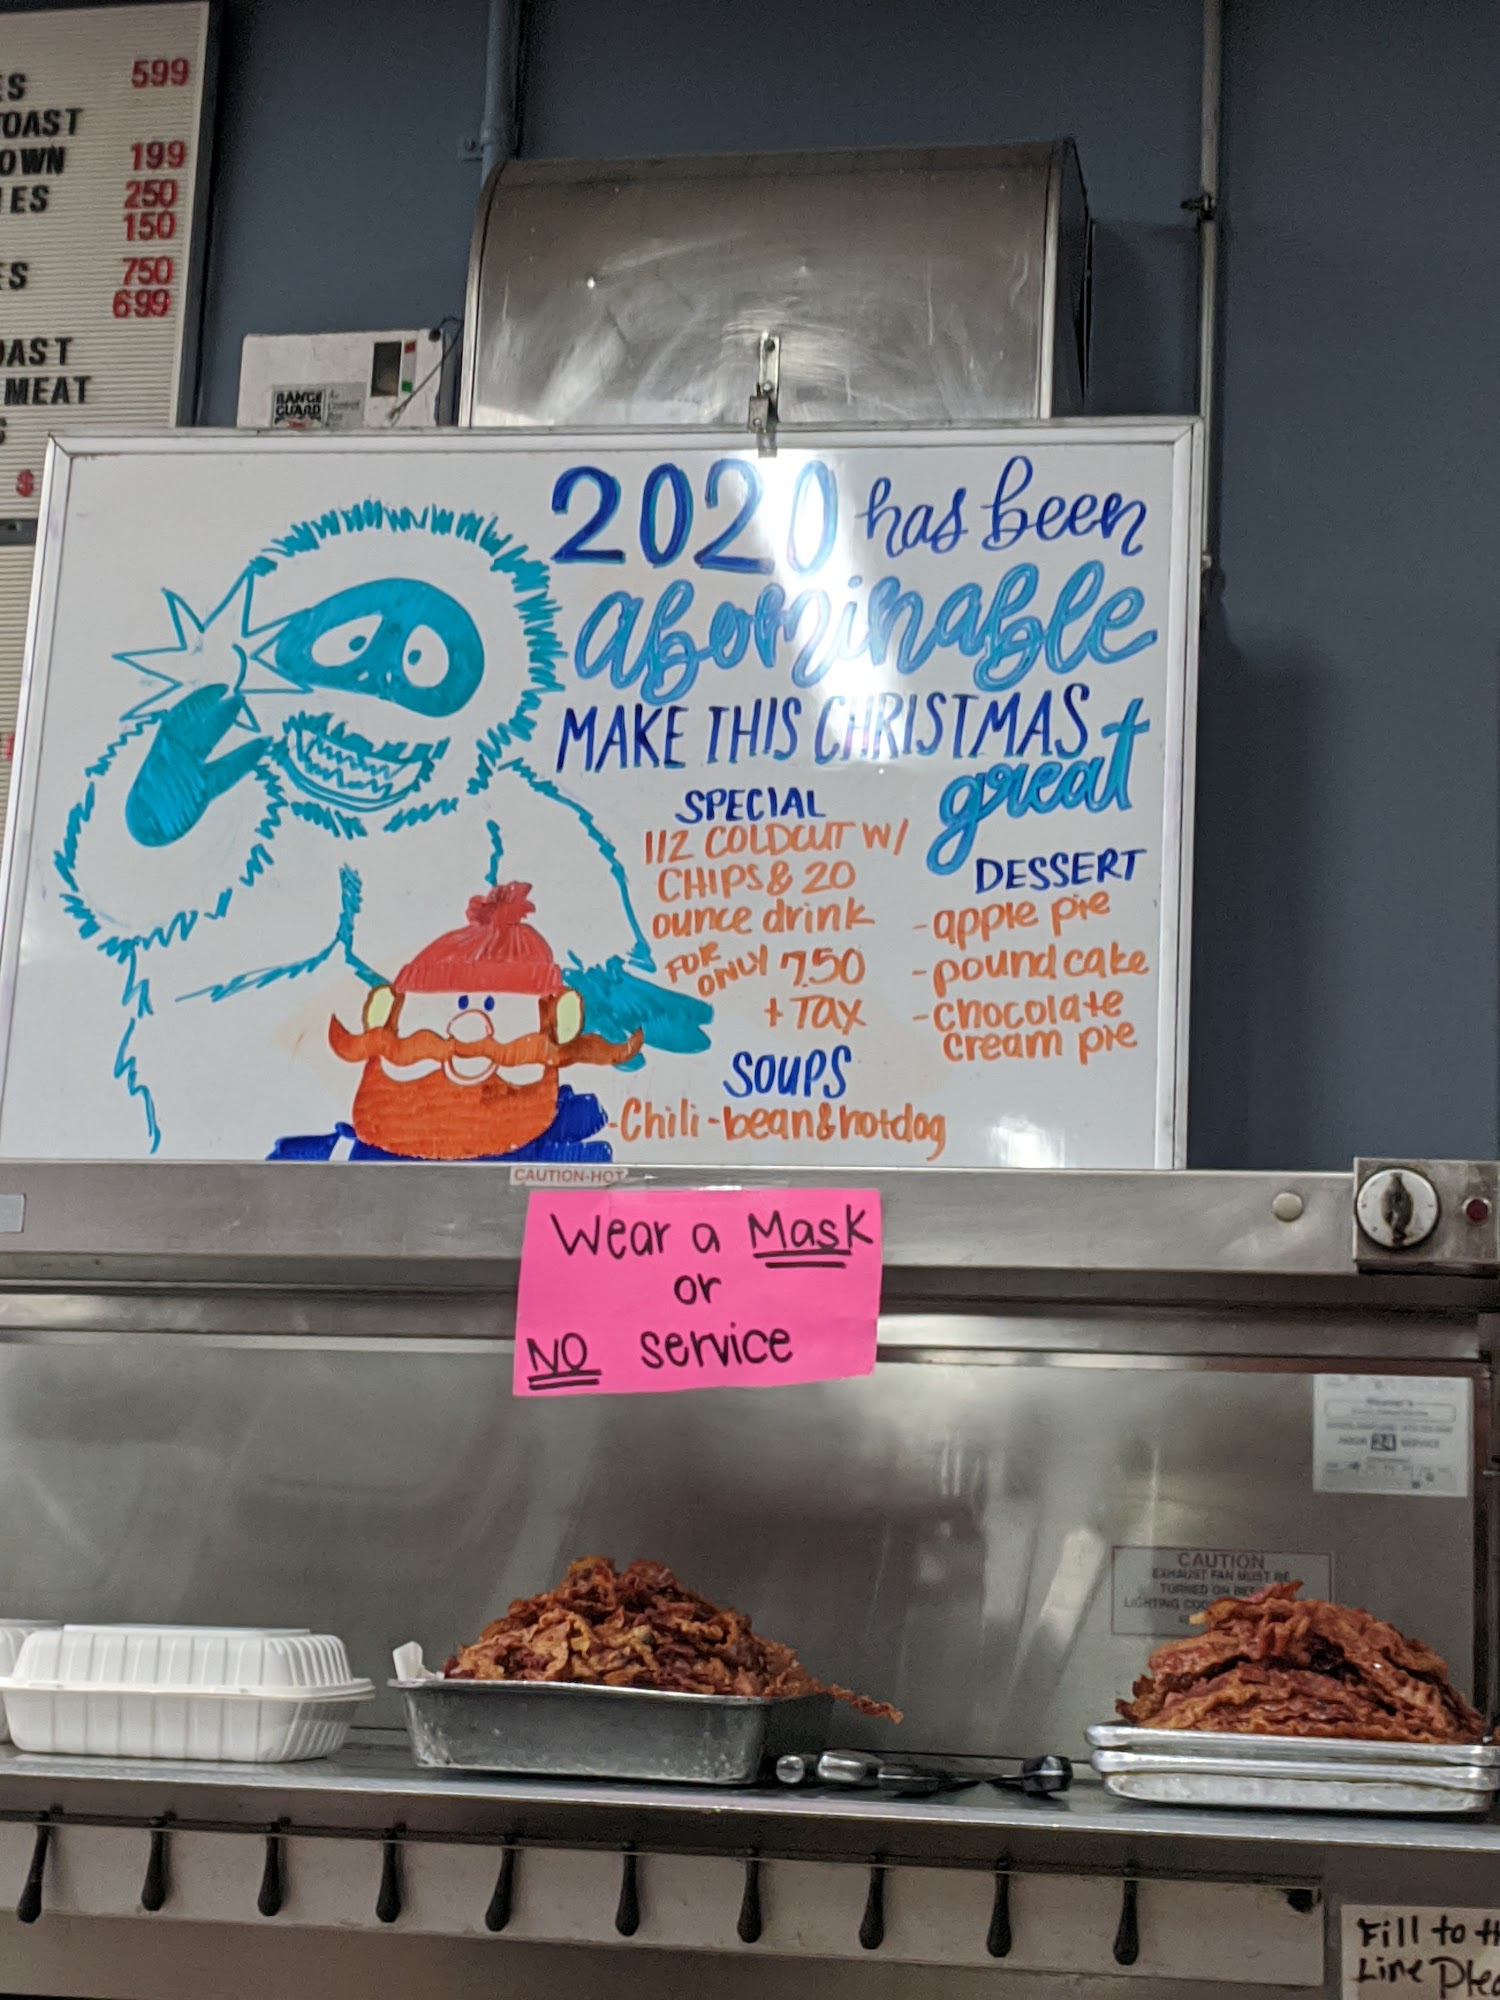 ES 599
TOAST
OWN 199
IES 250
150
ES 750
699
OAST
MEAT
S
$
RANGE
GUARD
2020 has been
abominable
MAKE THIS CHRISTMAS
great
SPECIAL
1/2 COLDCUT W/
CHIPS & 20
ounce drink
FOR ONLY 7.50
+ TAX
DESSERT
-apple pie
-pound cake
-chocolate
cream pie
SOUPS
-Chili-bean&hotdog
CAUTION-HOT
Wear a Mask
or
NO service
24
CAUTION
EXHAUST FAN MUST BE
TURNED ON BE
LIGHTING COO
Fill to th
Line Plea